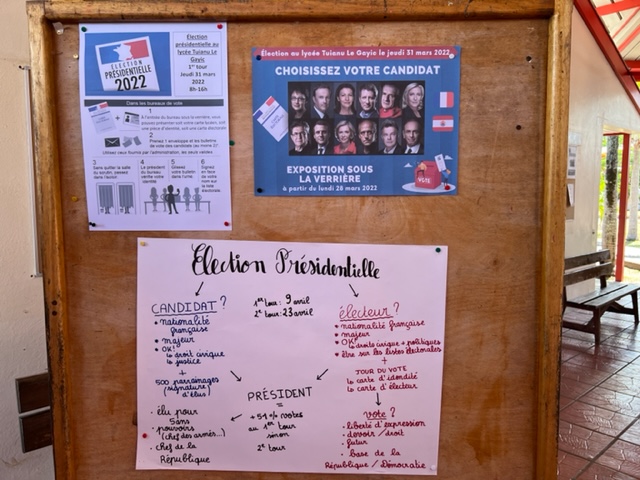 ÉLECTION
PRÉSIDENTIELLE
2022
Élection
présidentielle au
lycée Tuianu Le
Gayic
1er tour
Jeudi 31 mars
2022
8h-16h
Dans les bureaux de vote
1
2
Prenez 1 enveloppe et les bulletins
3
4
5
6
Élection au lycée Tuianu Le Gayic le jeudi 31 mars 2022
CHOISISSEZ VOTRE CANDIDAT
EXPOSITION SOUS
LA VERRIÈRE
à partir du lundi 28 mars 2022
VOTE
Election Présidentielle
CANDIDAT ?
• nationalité
française
• majeur
• OK!
↳ droit civique
↳ justice
+
500 parrainages
(signature)
d'élus
1er tour : 9 avril
2e tour : 23 avril
électeur ?
• nationalité française
• majeur
• OK!
↳ droits civique + politiques
• être sur les listes électorales
+
JOUR DU VOTE
↳ carte d'identité
↳ carte d'électeur
PRÉSIDENT
=
+ 51% votes
au 1er tour
sinon
2e tour
• élu pour
5ans
• pouvoirs
(chef des armés...)
• chef de la
République
vote ?
• liberté d'expression
• devoir / droit
• futur
• base de la
République / Démocratie